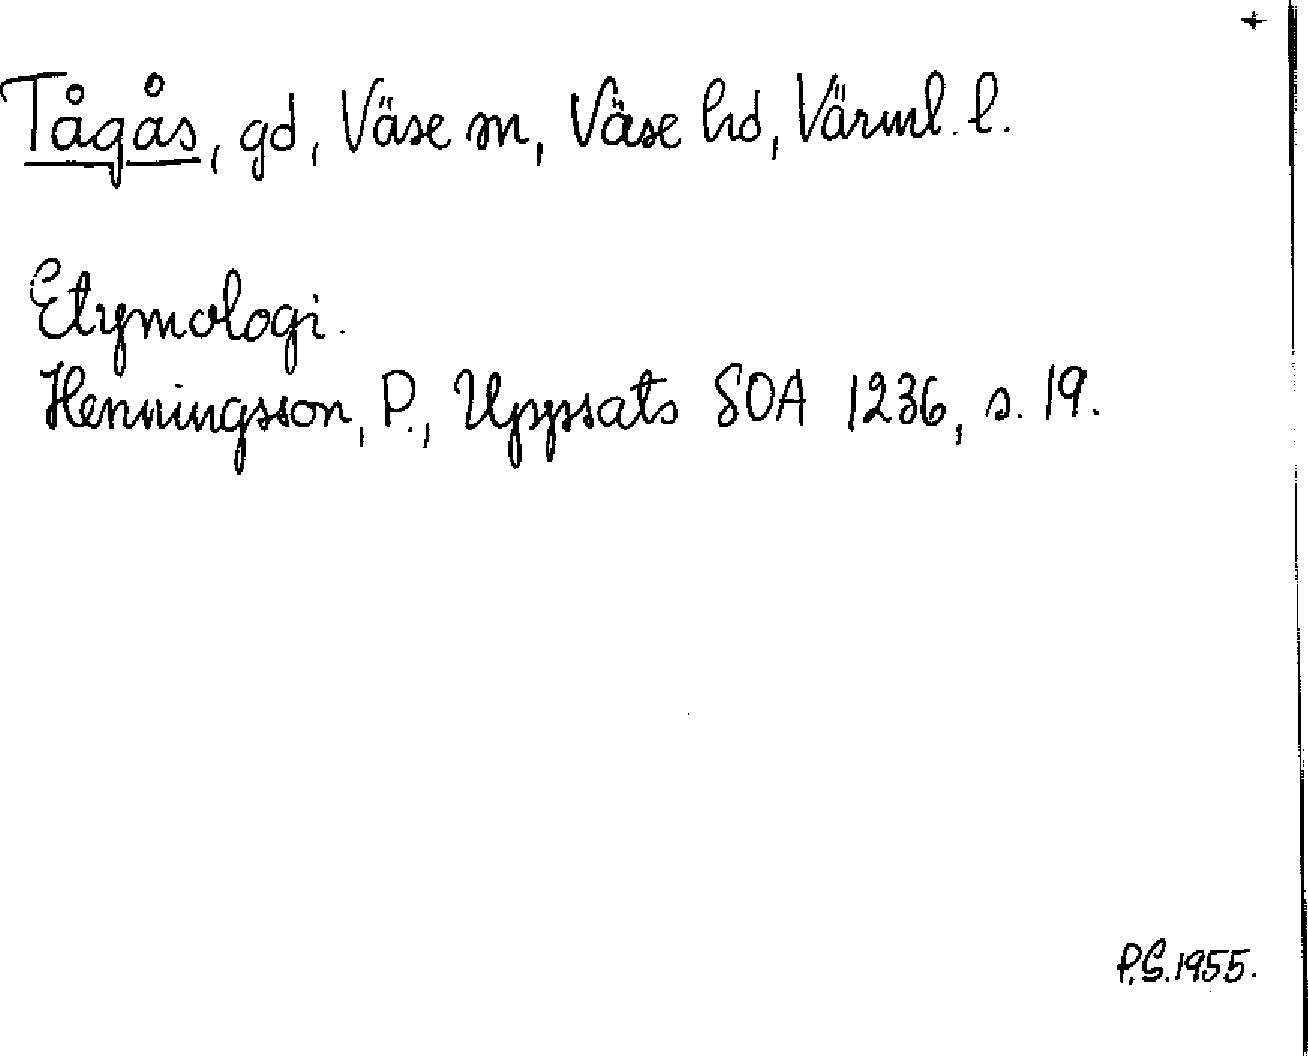 +
Tågås, gd, Väse sn, Väse hd, Värml. l.
Etymologi.
Henningsson, P., Uppsats SOA 1236, s. 19.
P.G. 1955.